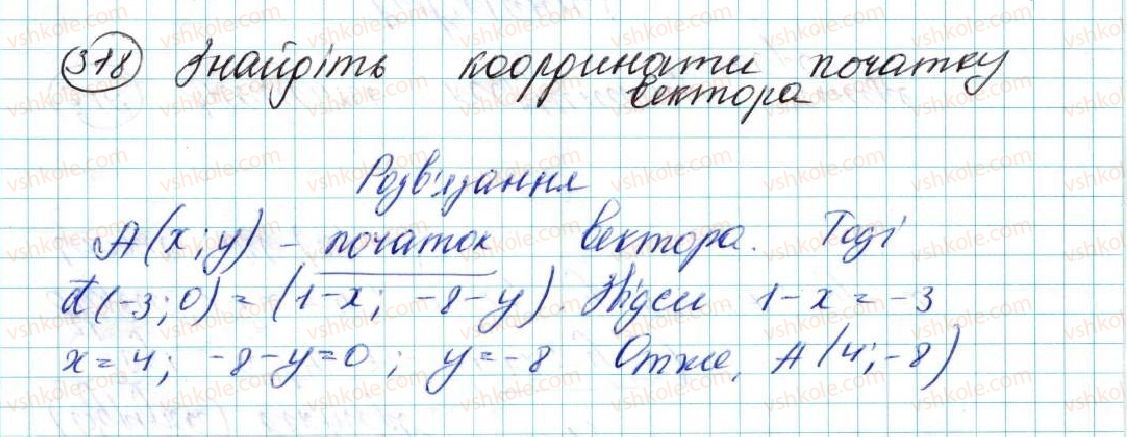 318 Знайдіть координати початку
вектора
Розв'язання
A(x; y) - початок вектора. Тоді
a(-3; 0) = (1-x; -8-y). Звідси 1-x = -3
x = 4; -8-y=0; y=-8 Отже, A(4; -8)